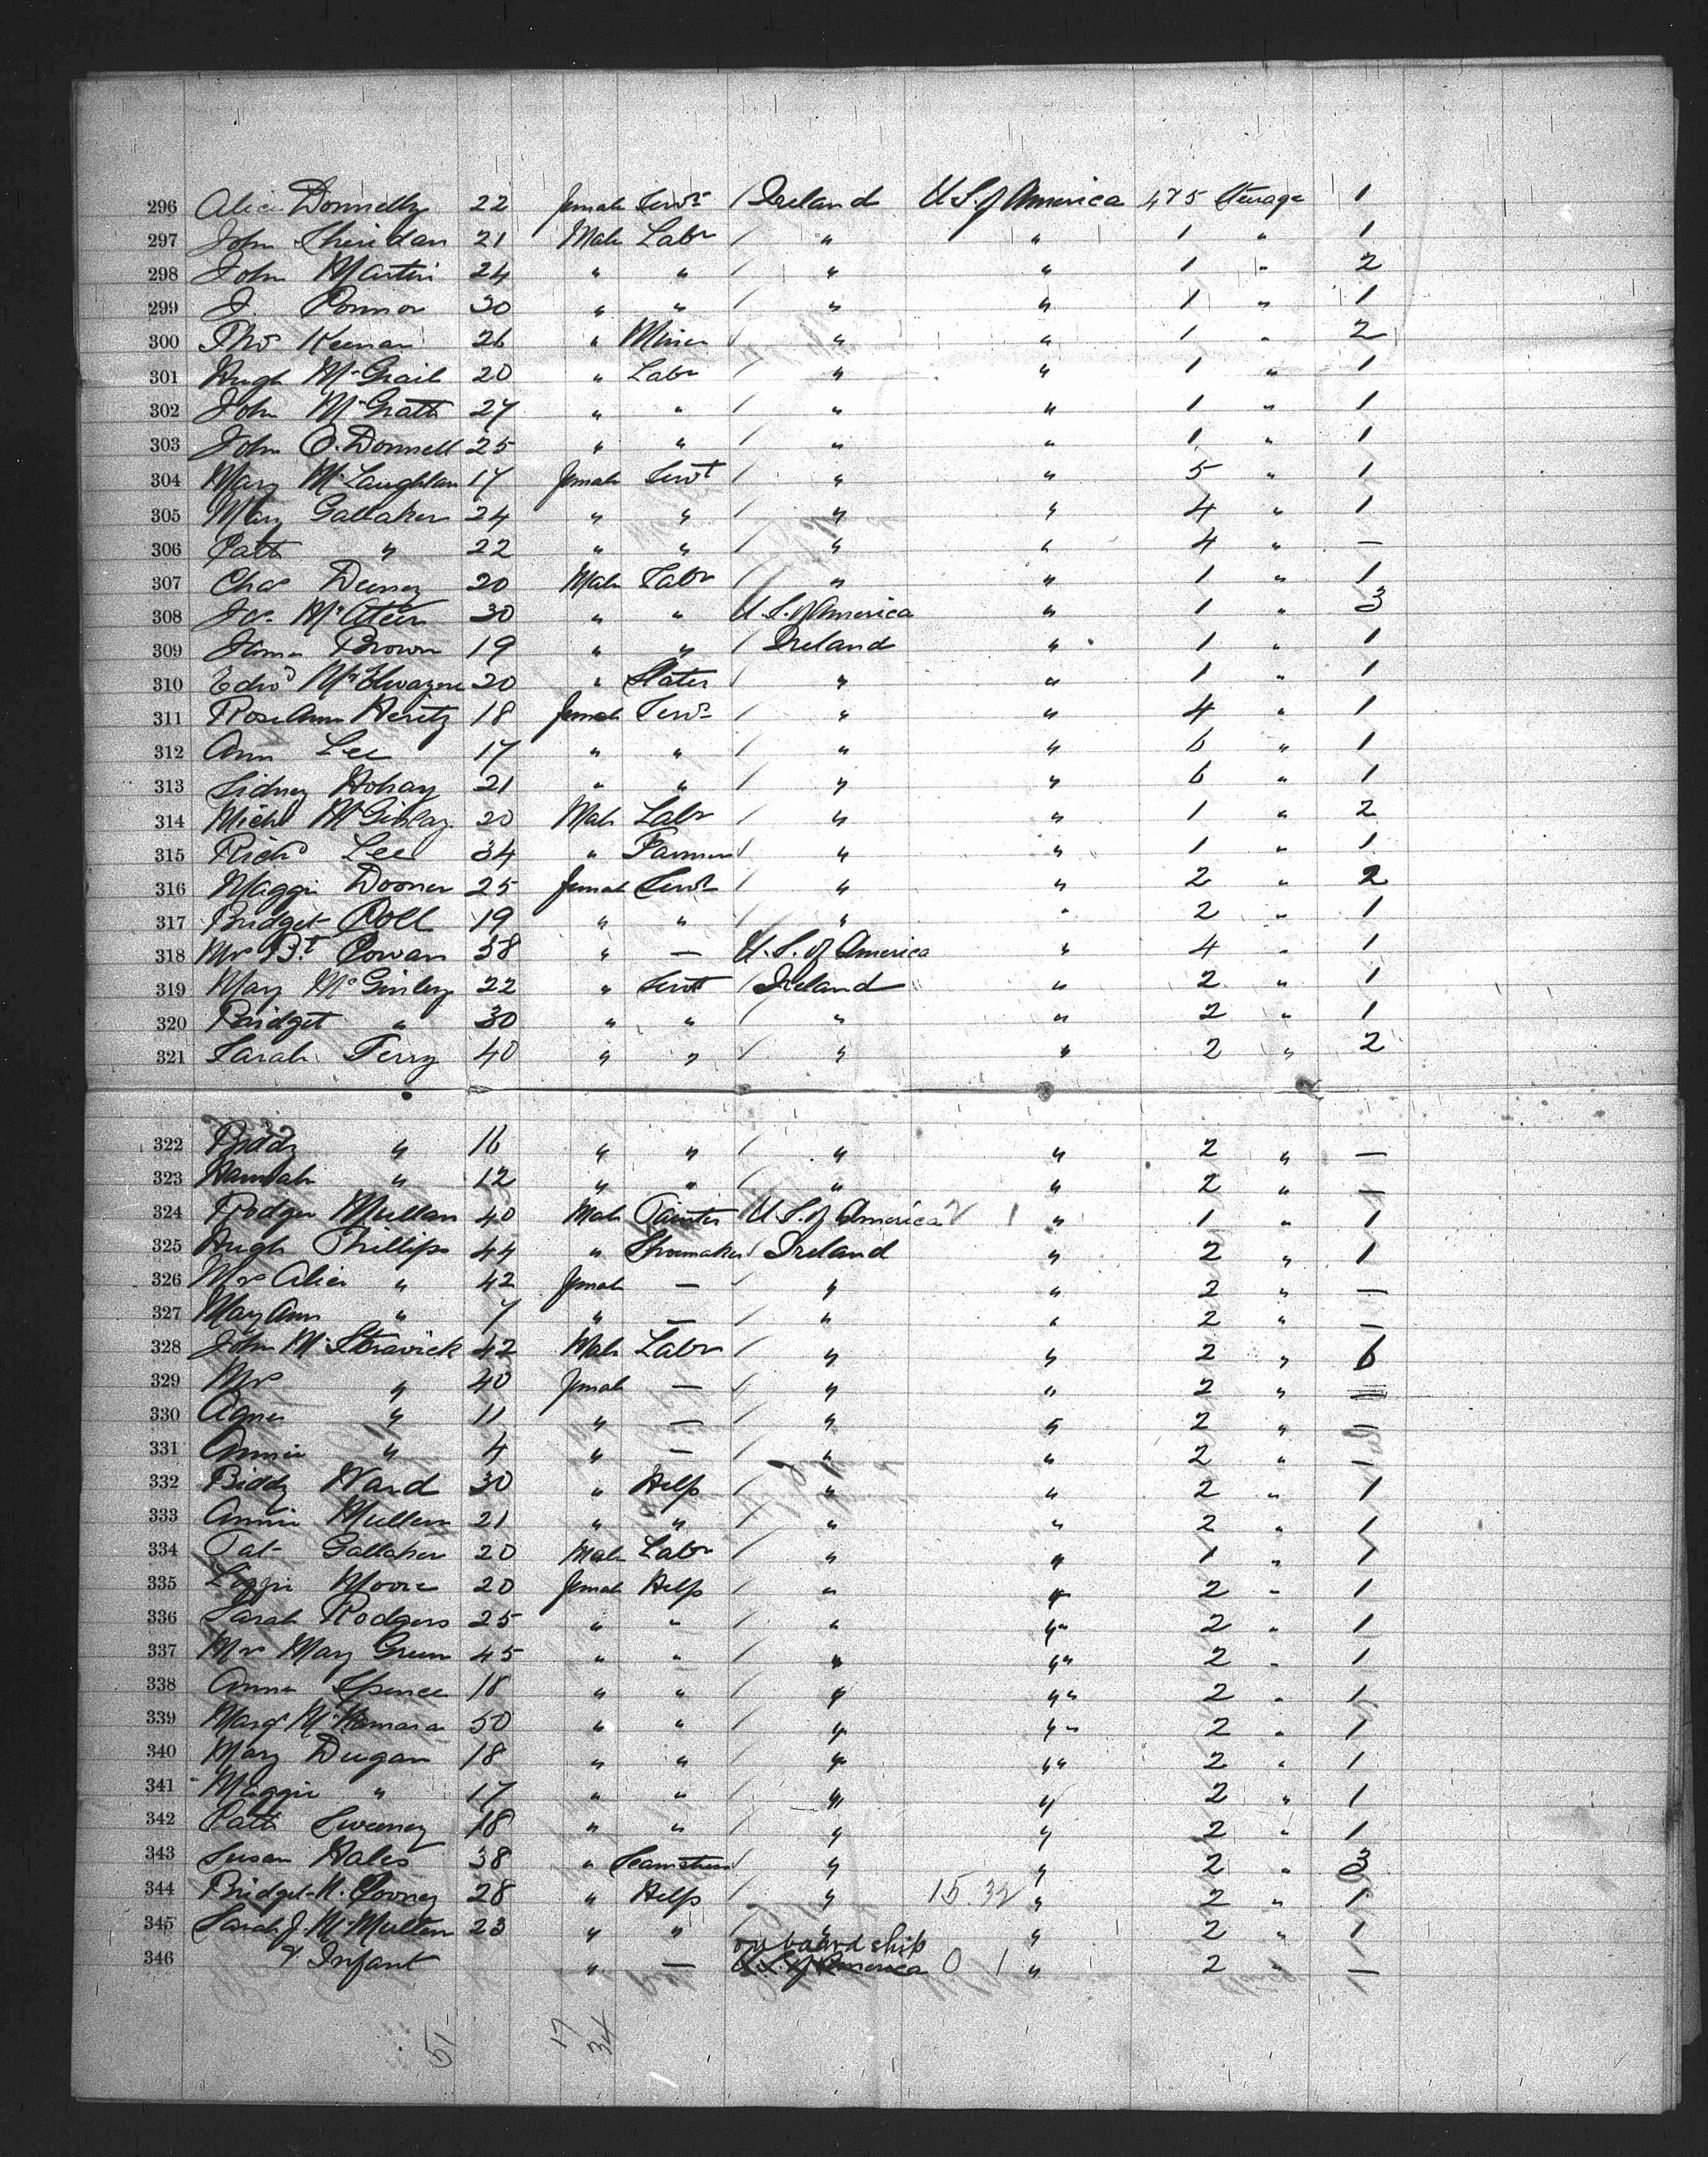 296 Alice Donnelly 22 female Servt / Ireland U.S. of America 475 Steerage 1
297 John Sheridan 21 Male Labr / " " 1 " 1
298 John Martin 24 " " / " " 1 " 2
299 J. Connor 30 " " / " " 1 " 1
300 Thos Keenan 26 " Miner / " " 1 " 2
301 Hugh McGrail 20 " Labr / " " 1 " 1
302 John McGrath 27 " " / " " 1 " 1
303 John O.Donnell 25 " " / " " 1 " 1
304 Mary McLaughlan 17 female Servt / " " 5 " 1
305 Mary Gallaher 24 " " / " " 4 " 1
306 Patk " 22 " " / " " 4 " —
307 Chas Deeney 20 Male Labr / " " 1 " 1
308 Jas McAteer 30 " " U.S. of America " 1 " 3
309 James Brown 19 " " / Ireland " 1 " 1
310 Edwd McElwayne 20 " Slater / " " 1 " 1
311 RoseAnn Heritz 18 female Servt / " " 4 " 1
312 Ann Lee 17 " " / " " 6 " 1
313 Sidney Hohay 21 " " / " " 6 " 1
314 Michl McGinlay 20 Male Labr / " " 1 " 2
315 Richd Lee 34 " Farmer / " " 1 " 1
316 Maggie Dooner 25 female Servt / " " 2 " 2
317 Bridget Coll 19 " " / " " 2 " 1
318 Mrs Bt Cowan 38 " — U.S. of America " 4 " 1
319 Mary McGinley 22 " Servt / Ireland " 2 " 1
320 Bridget " 30 " " / " " 2 " 1
321 Sarah Ferry 40 " " / " " 2 " 2
322 Biddy " 16 " " / " " 2 " —
323 Hannah " 12 " " / " " 2 " —
324 Rodger Mullan 40 Male Painter U.S. of America 2 1 " 1 " 1
325 Hugh Phillips 44 " Shoemaker / Ireland " 2 " 1
326 Mrs Alice " 42 female — / " " 2 " —
327 Mary Ann " 7 " — / " " 2 " —
328 John McStravick 42 Male Labr / " " 2 " 6
329 Mrs " 40 female — / " " 2 " —
330 Agnes " 11 " — / " " 2 " —
331 Annie " 4 " — / " " 2 " —
332 Biddy Ward 30 " Help / " " 2 " 1
333 Annie Mullen 21 " " / " " 2 " 1
334 Pat Gallaher 20 Male Labr / " " 1 " 1
335 Lizzie Moore 20 female Help / " " 2 " 1
336 Sarah Rodgers 25 " " / " " 2 " 1
337 Mrs Mary Green 45 " " / " " 2 " 1
338 Anna Spence 18 " " / " " 2 " 1
339 Margt McNamara 50 " " / " " 2 " 1
340 Mary Dugan 18 " " / " " 2 " 1
341 Maggie " 17 " " / " " 2 " 1
342 Patk Sweeney 18 " " / " " 2 " 1
343 Susan Hales 38 " Seamstress / " " 2 " 3
344 Bridget N. Cooney 28 " Help / " 15.32 " 2 " 1
345 Sarah J. McMullen 23 " " / " " 2 " 1
on board ship
346 & Infant " — U.S. of America 0 1 " 2 " —
51 17 34